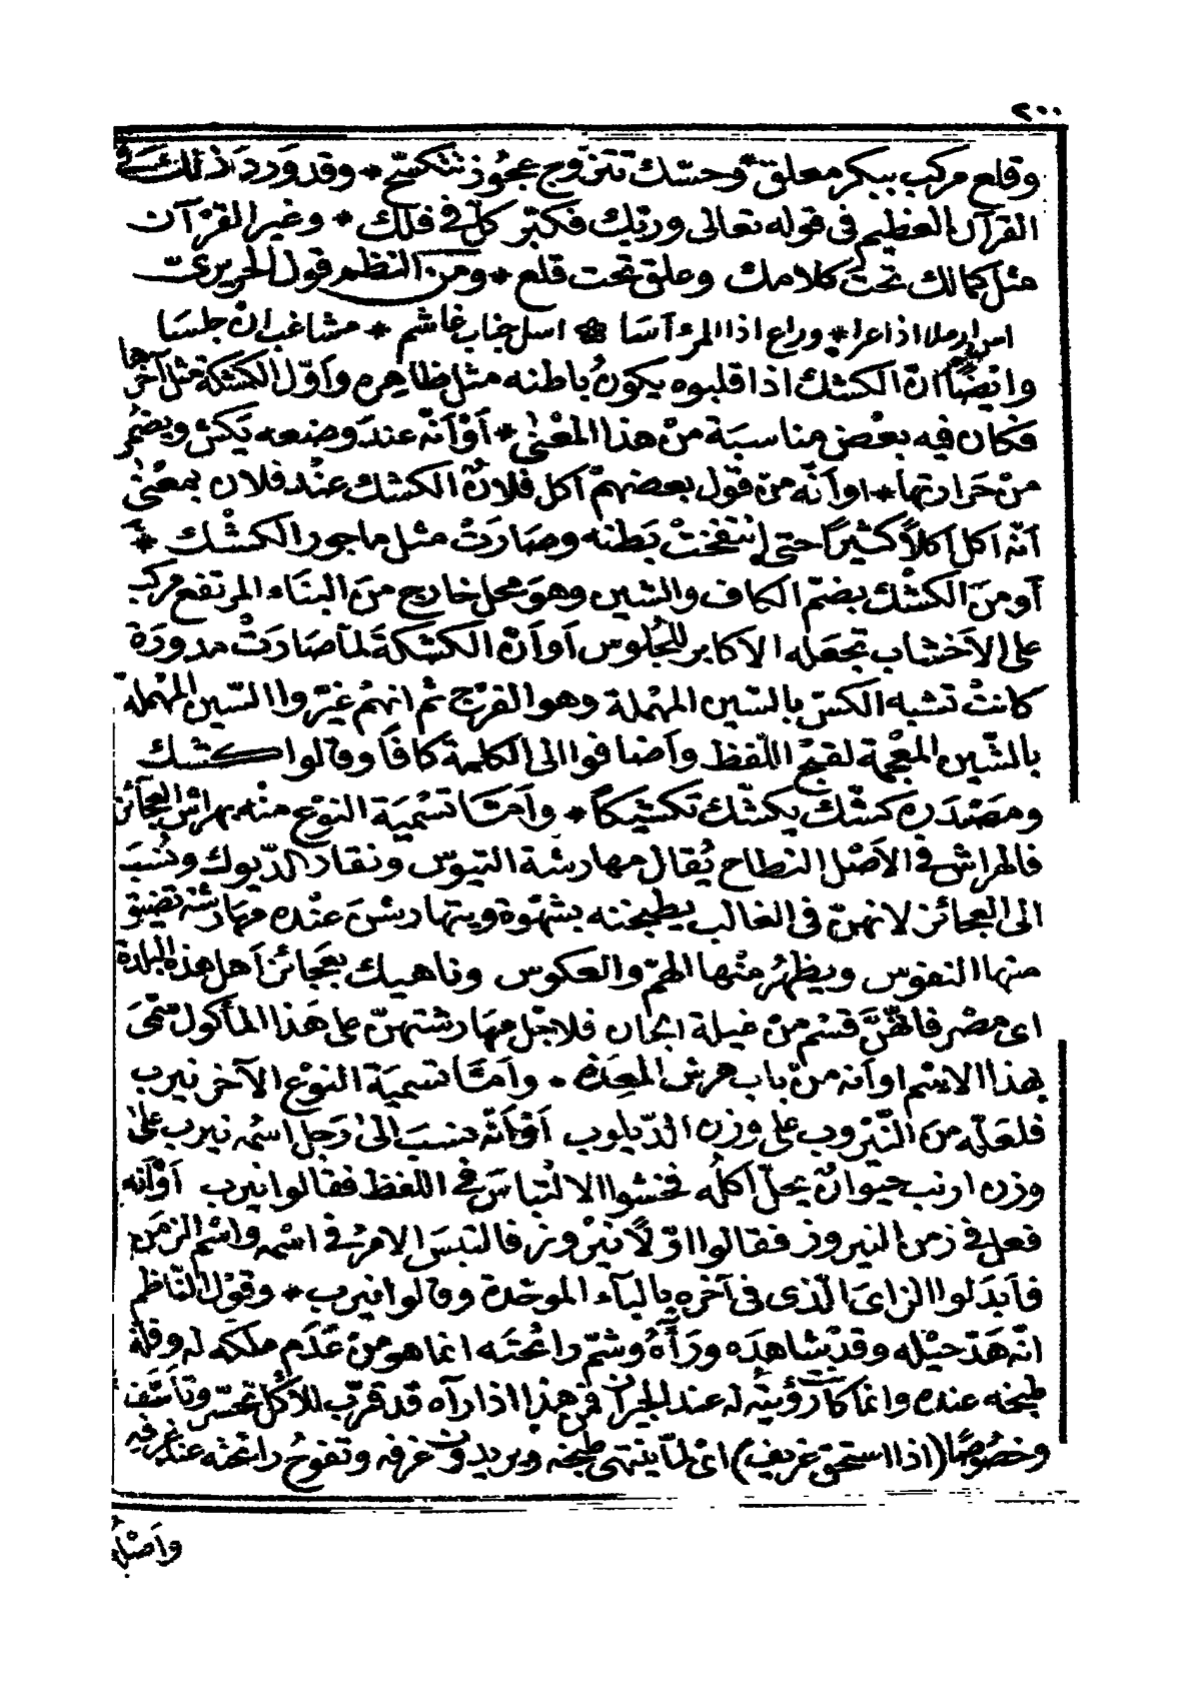 ٢٠٠
وقلع مركب ببكر معلق * وحسّك تتزوج عجُوز تتكسّح * وقد وَرد ذلك في
القرآن العظيم في قوله تعالى وربّك فكبّر كلّ في فلك * وغير القرْآن
مثل كمالك تحت كلامك وعلق تحت قلع * ومن النظم قول الحريريّ
اس ارملا اذا عرا * وراع اذا المرءُ آسَا * اسل جناب غاشم * مشاغب ان جلسَا
وايضًا انّ الكشك اذا قلبوه يكونُ باطنه مثل ظاهره وأوّل الكشكة مثل آخرها
فكان فيه بعْض مناسبَة منْ هذا المعْنى * أوْ أنّه عندَ وضعه يَكشّ ويضمُر
منْ حَرارتها * او أنّه منْ قوْل بعضهمْ أكل فلانٌ الكشك عنْد فلان بمعْنىٰ
أنّه اكل أكلاً كثيرًا حتى انتفختْ بَطنه وصَارَتْ مثل ماجور الكشْك *
أو منَ الكشْك بضمّ الكاف والشين وهوَ محل خارج منَ البنَاء المرتفع مركب
على الأخشاب تجعَله الاكابر للجُلوس أو أنّ الكشكةَ لمّا صَارَتْ مدورَة
كانتْ تشبه الكسّ بالسّين المهْملة وهو الفرْج ثم انهمْ غيّروا السّين المهْملة
بالشّين المعْجمة لقبْح اللّفظ وأضافوا الى الكلمة كافًا وقالوا كشك
ومَصْدَره كشّك يكشّك تكشيكًا * وأمّا تسْميَة النوْع منْه بهراش العجائز
فالهراش في الأصْل النطاح يُقال مهارشة التيوس ونقار الدّيوك ونُسبَ
الى العجائز لانهنّ في الغالب يطبخنه بشهْوة ويتهارشنَ عنْده مهَارشة تضيق
منها النفوس ويظهَرُ منْها الهمّ والعكوس وناهيك بعَجائز أهل هذه البلدة
اى مصْر فانهُنَّ قسْم منْ خيلة الجان فلاجْل مهَارشتهنّ على هَذا المأكول سمّىَ
بهذا الاسْم او أنه منْ باب هرش المعِدة * وأمّا تسميَة النوْع الآخر نيرب
فلعَلّه من النّيروب على وزن الدّيلوب أوْ أنّه نسبَ الىٰ رَجل اسْمه نيرب علىٰ
وزن ارنب حيوانٌ يحلّ أكلُه فخشوا الالْتباسَ في اللفظ فقالوا نيرب أوْ أنه
فعل في زمن النيروز فقالوا اوّلاً نيْروز فالتبسَ الامرُ في اسْمه واسْم الزمَن
فأبدَلوا الزاىَ الّذى في آخره بالبآء الموحّدة وقالوا نيرب * وقوْل النّاظم
انّه هَدّ حيْله وقدْ شاهدَه ورَآهُ وشمّ رائحَته انما هو منْ عَدَم ملكه له وقلّة
طبخه عنده وانما كانَ رُؤيته له عند الجيران فمن هذا اذا رآه قد قرّب للأكْل تحسّر وتأسّف
وخصُوصًا (اذا استحق غريف) اىْ لمّا ينتهى طبخه ويريدون غرفه وتفوحُ رائحته عند غرفه
وأصْل